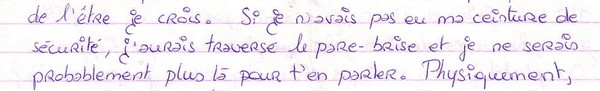 de l'être je crois. Si je n'avais pas eu ma ceinture de
sécurité, j'aurais traversé le pare-brise et je ne serais
probablement plus là pour t'en parler. Physiquement,